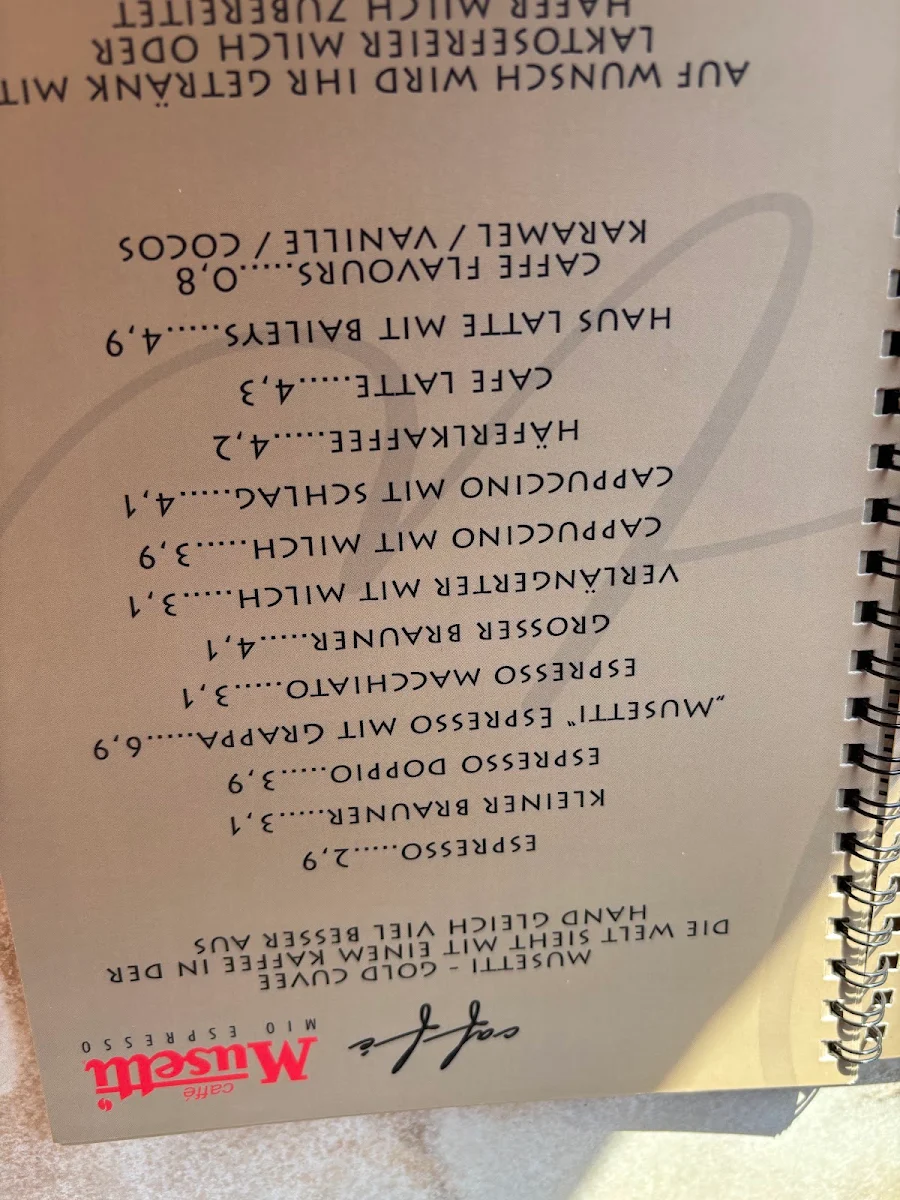 caffè
caffé
Musetti
MIO ESPRESSO
MUSETTI - GOLD CUVEE
DIE WELT SIEHT MIT EINEM KAFFEE IN DER
HAND GLEICH VIEL BESSER AUS
ESPRESSO......2,9
KLEINER BRAUNER......3,1
ESPRESSO DOPPIO......3,9
„MUSETTI“ ESPRESSO MIT GRAPPA......6,9
ESPRESSO MACCHIATO......3,1
GROSSER BRAUNER......4,1
VERLÄNGERTER MIT MILCH......3,1
CAPPUCCINO MIT MILCH......3,9
CAPPUCCINO MIT SCHLAG......4,1
HÄFERLKAFFEE......4,2
CAFE LATTE......4,3
HAUS LATTE MIT BAILEYS......4,9
CAFFE FLAVOURS......0,8
KARAMEL / VANILLE / COCOS
AUF WUNSCH WIRD IHR GETRÄNK MIT
LAKTOSEFREIER MILCH ODER
HAFER MILCH ZUBEREITET